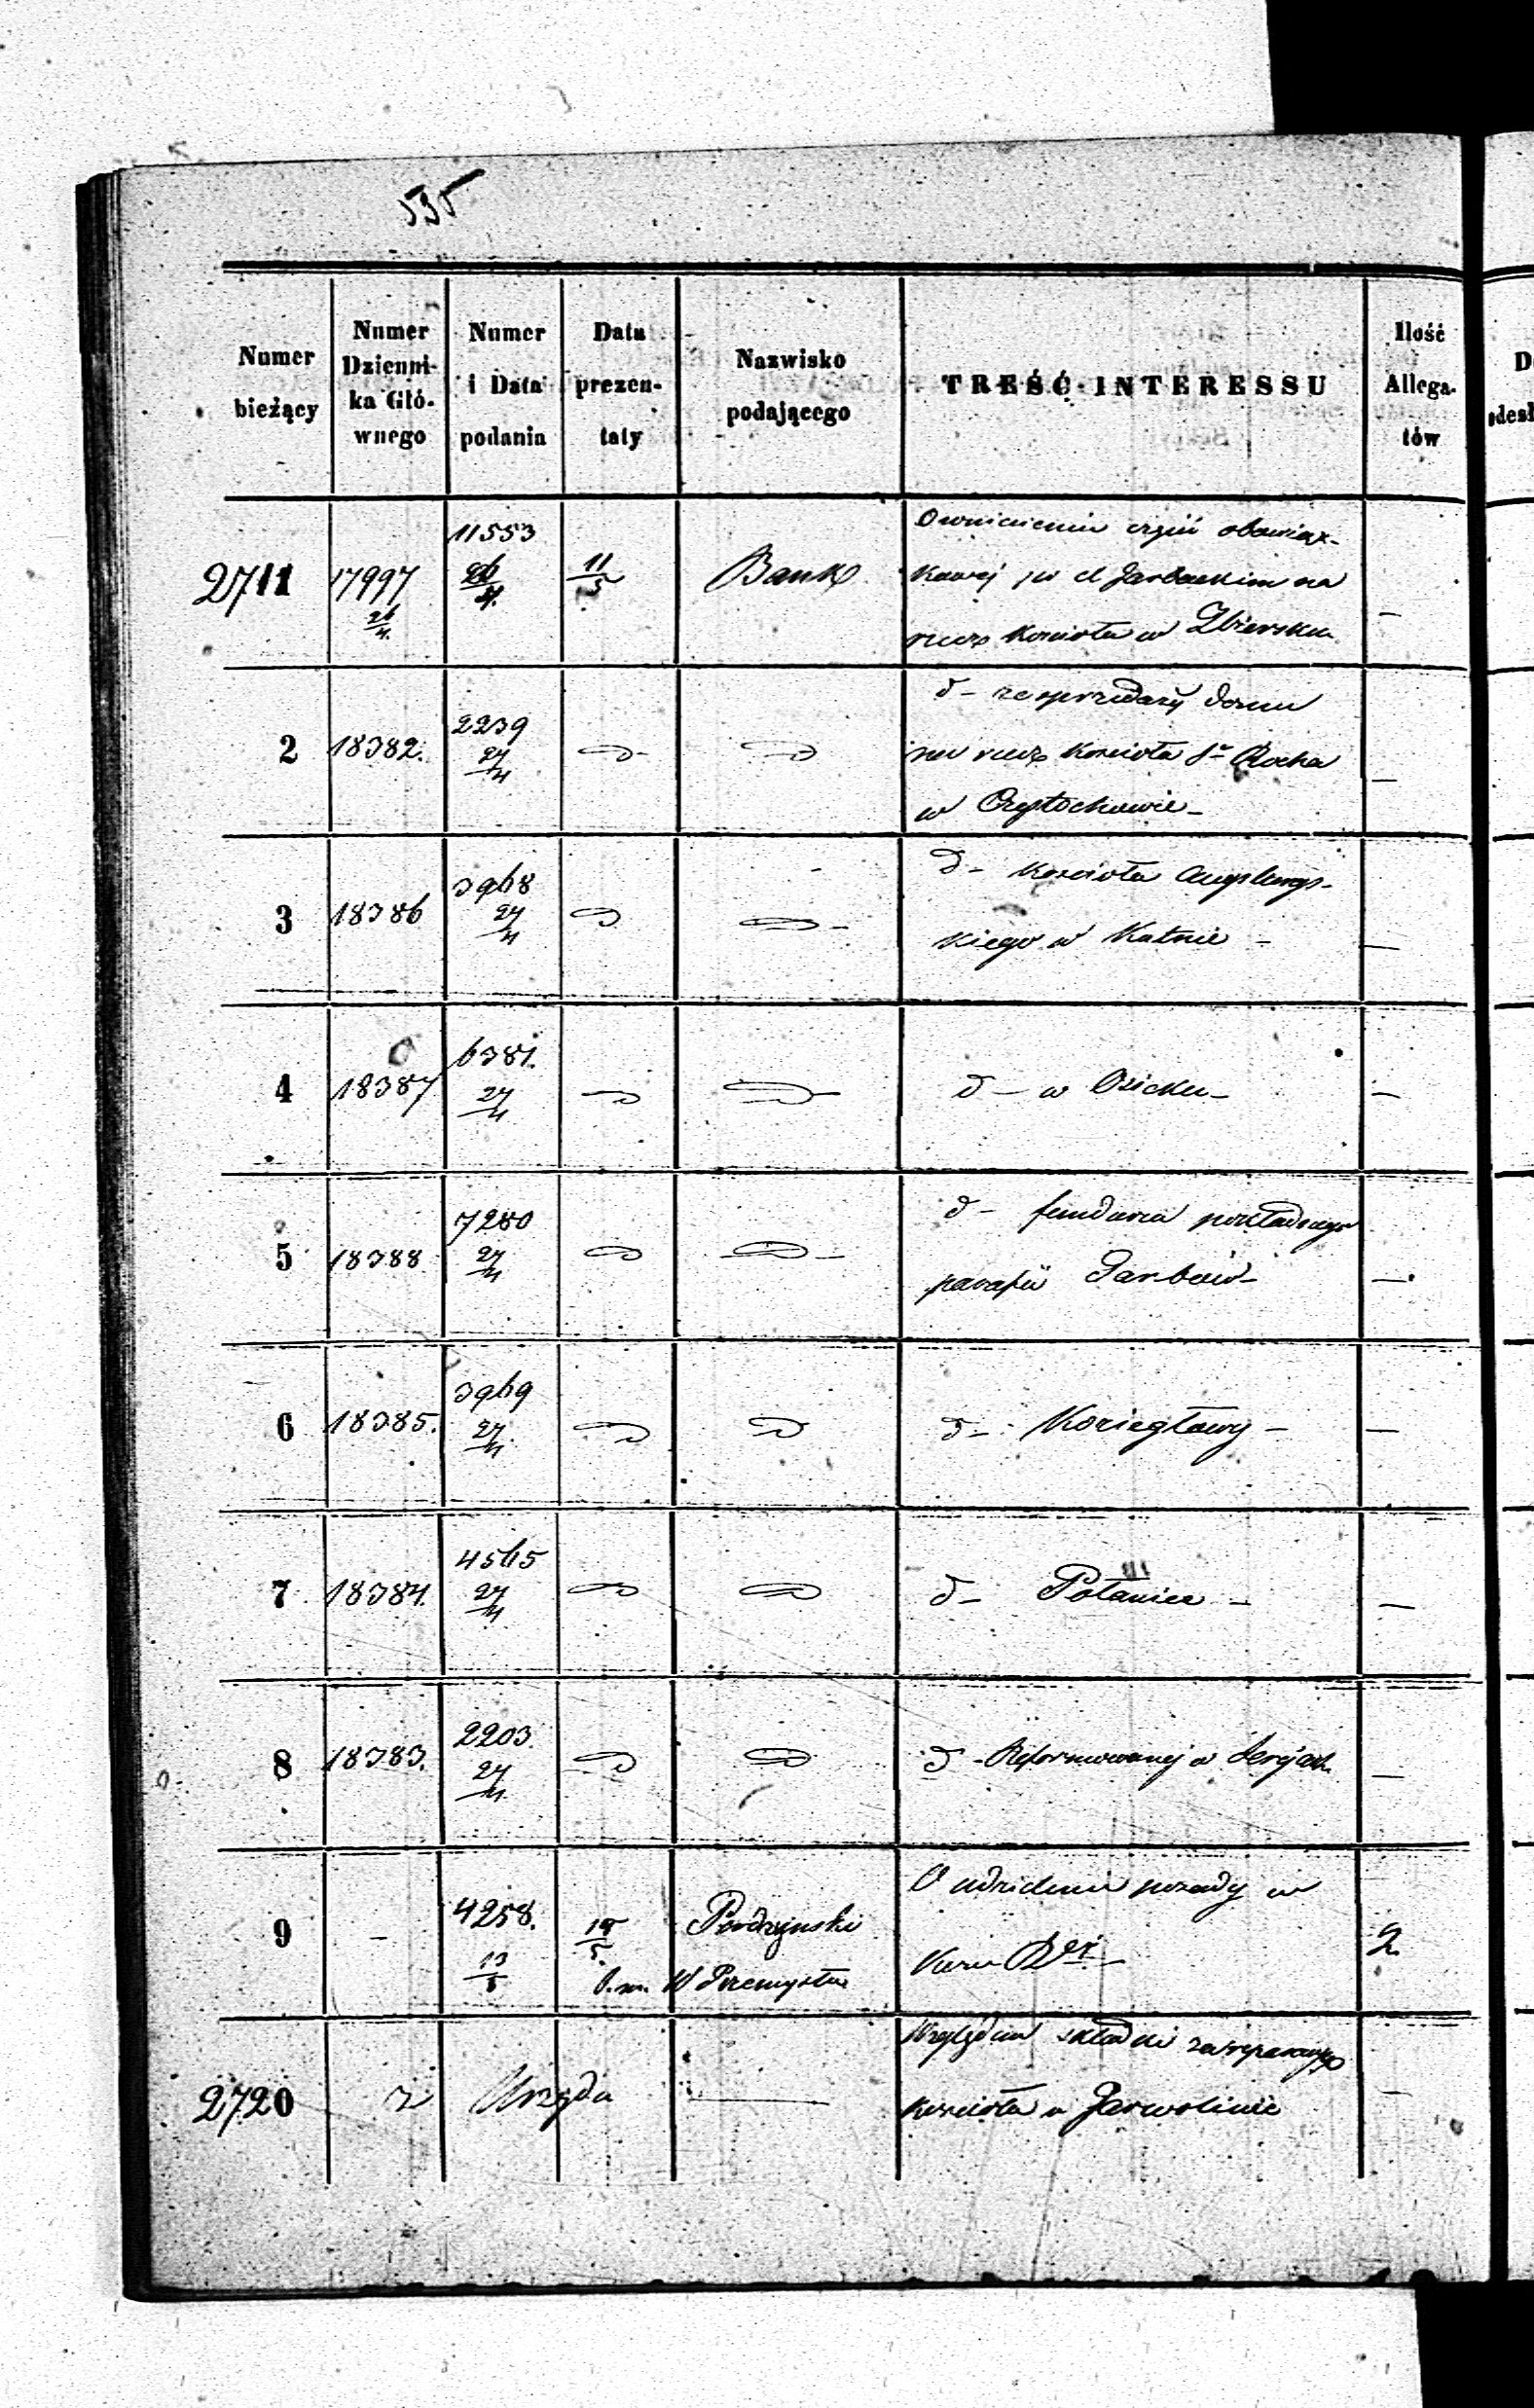 535
Numer bieżący
Numer Dzienni- ka Głó- wnego
Numer i Data podania
Data prezen- taty
Nazwisko podającego
TREŚĆ INTERESSU
Ilość Allega- tów
2711 17997 26/4. 11553 26/4. 11/5 Bank
O wniesieniu części obowiąz-
kowej po
rzecz kościoła w Zbiersku
—
2 18382. 2239 27/4
d- ze sprzedaży domu
na rzecz kościoła Sº Rocha
w Częstochowie —
3 18386 3968 27/4
d- kościoła Augsburgs-
kiego w Kutnie —
4 18387 6381. 27/4
d- w Osicku —
5 18388 7280 27/4
d- fundusza pokładnego
parafii Garbów —
6 18385. 3969 27/4
d- Koziegłowy —
7 18384. 4565 27/4
d- Połaniec —
8 18383. 2203. 27/4
d- Reformowanej w Serejach
9 — 4258. 13/5 15/5 Pordzynski
W Przemysław
O udzielenie posady w
2
2720 z Urzędu —
Względem składki na reparacyę
kościoła w Garwolinie